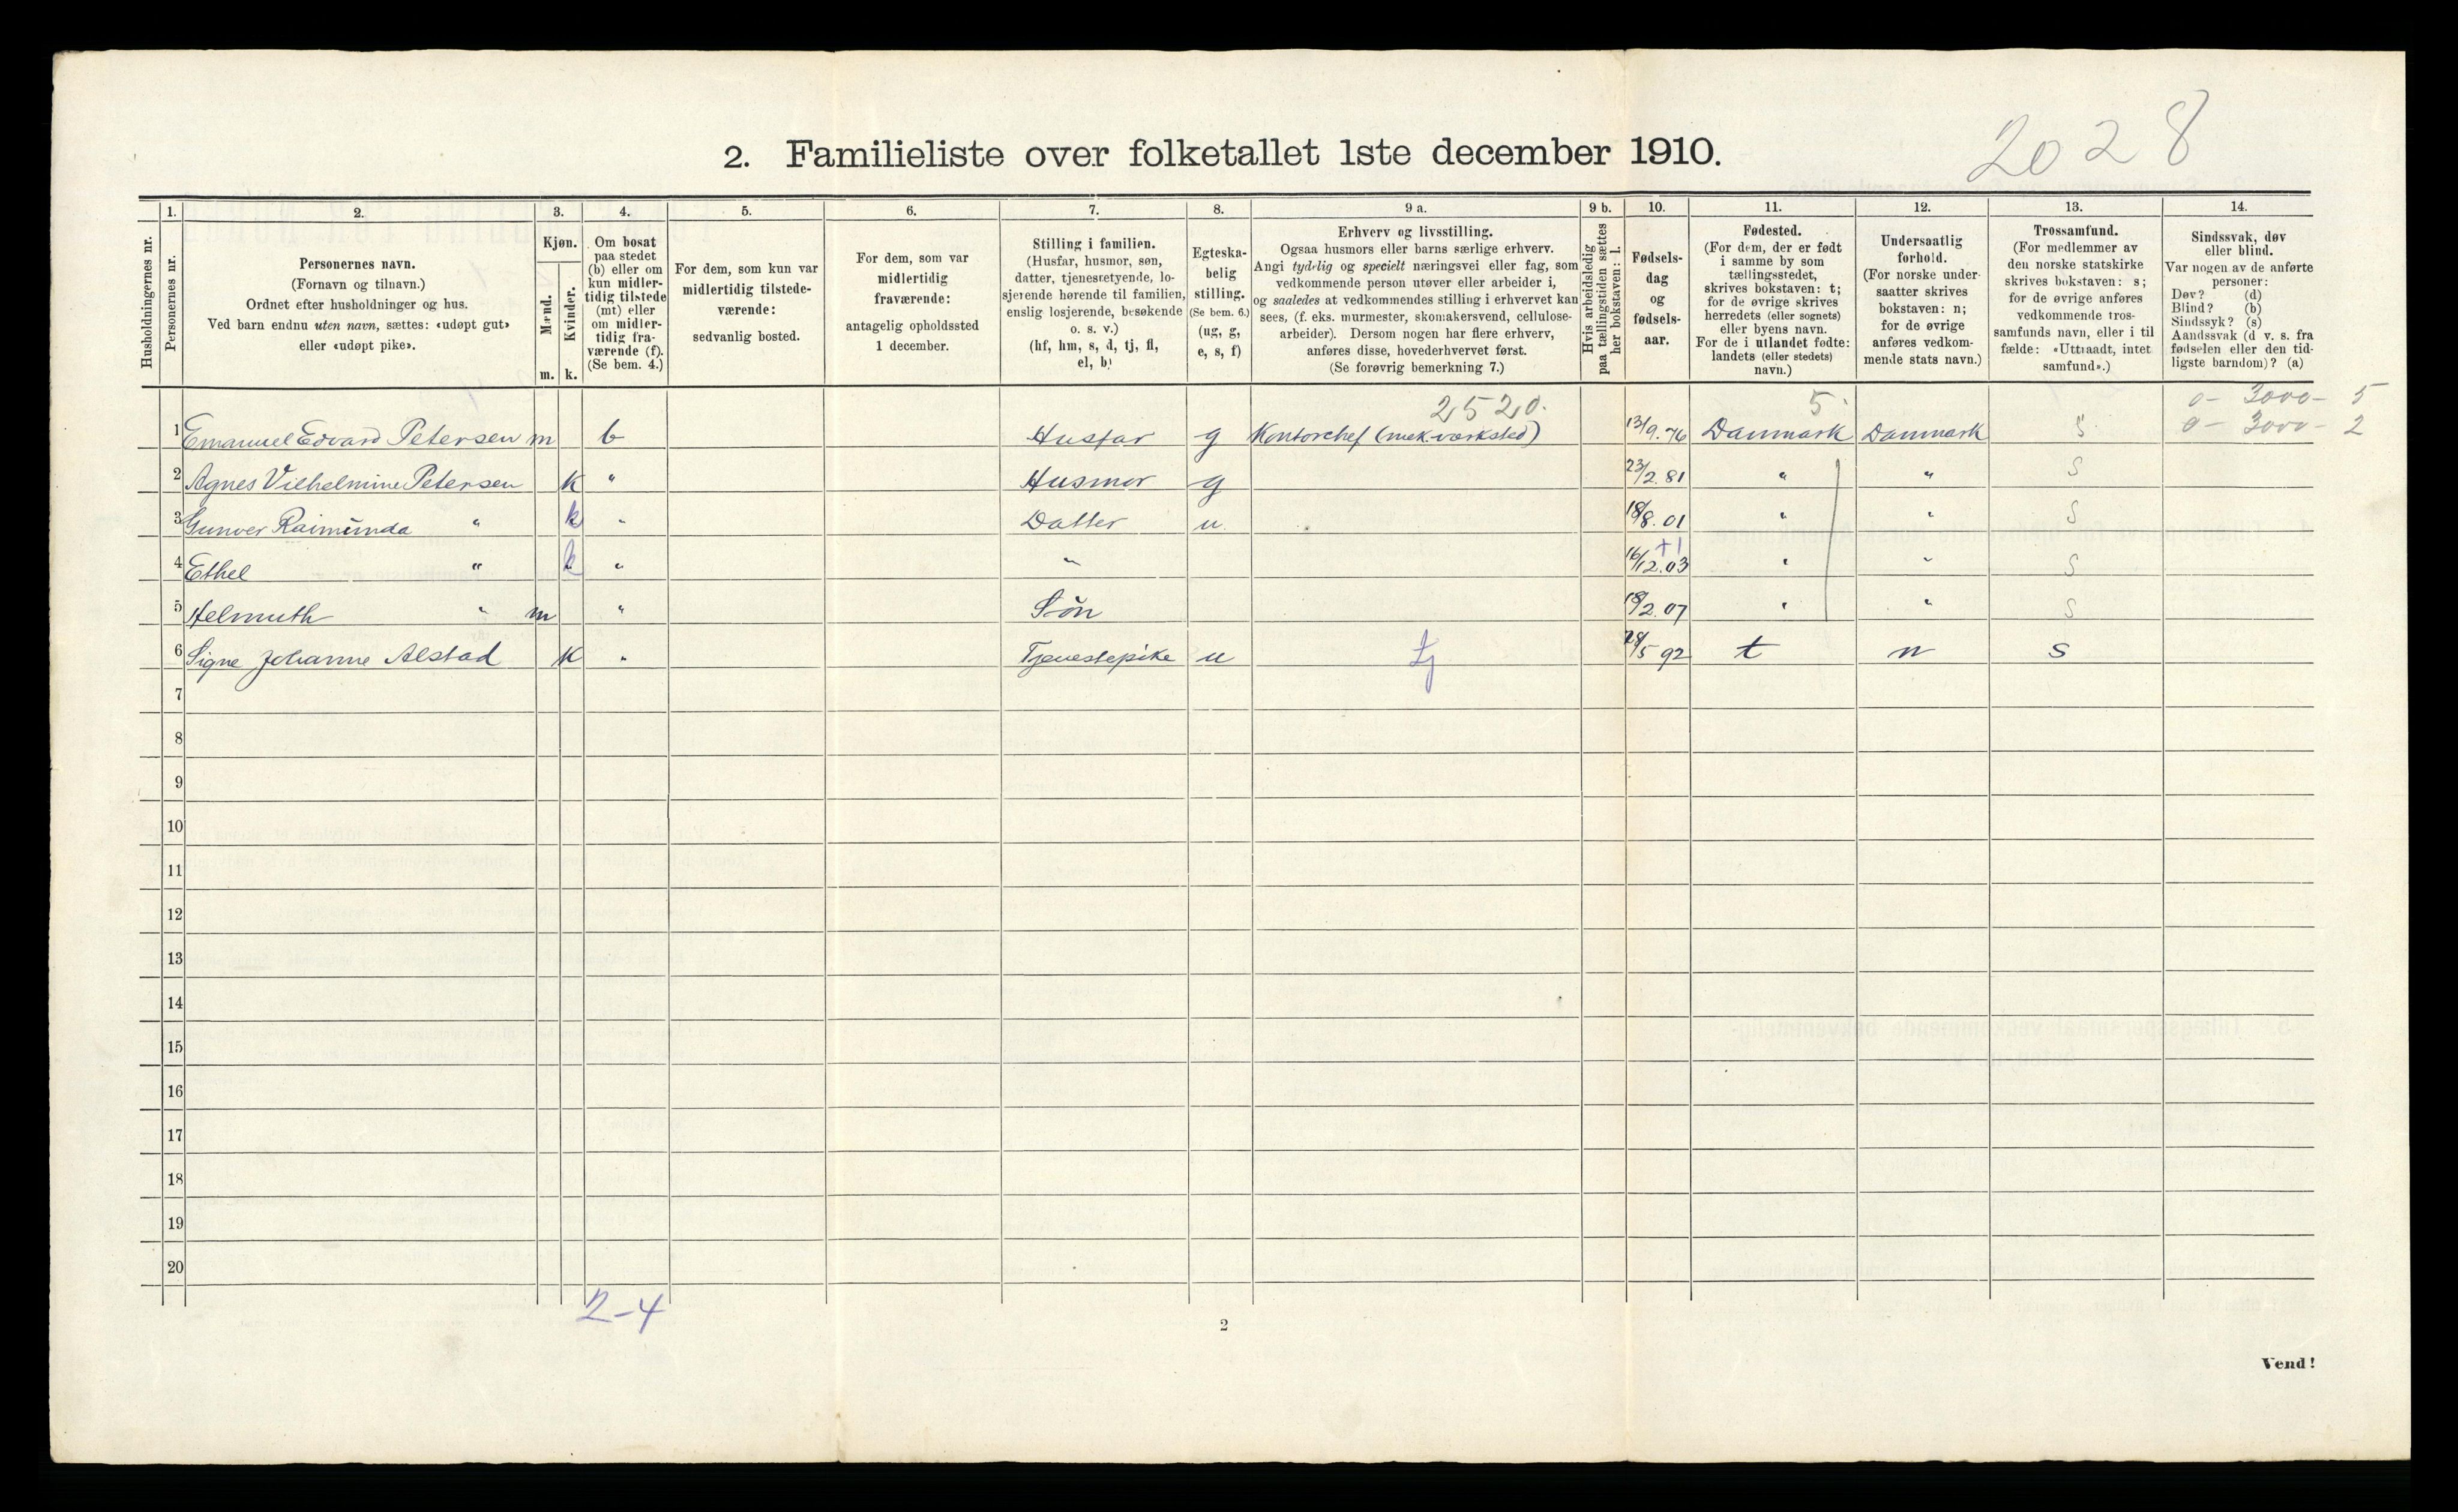 2028
2. Familieliste over folketallet 1ste december 1910.
Husholdningernes nr.
1. Personernes nr.
2. Personernes navn. (Fornavn og tilnavn.) Ordnet efter husholdninger og hus. Ved barn endnu uten navn, sættes: «udøpt gut» eller «udøpt pike».
3. Kjøn. Mænd. m. Kvinder. k.
4. Om bosat paa stedet (b) eller om kun midlertidig tilstede (mt) eller om midlertidig fraværende (f). (Se bem. 4.)
5. For dem, som kun var midlertidig tilstedeværende: sedvanlig bosted.
6. For dem, som var midlertidig fraværende: antagelig opholdssted 1 december.
7. Stilling i familien. (Husfar, husmor, søn, datter, tjenestetyende, losjerende hørende til familien, enslig losjerende, besøkende o. s. v.) (hf, hm, s, d, tj, fl, el, b)
8. Egteskabelig stilling. (Se bem. 6.) (ug, g, e, s, f)
9 a. Erhverv og livsstilling. Ogsaa husmors eller barns særlige erhverv. Angi tydelig og specielt næringsvei eller fag, som vedkommende person utøver eller arbeider i, og saaledes at vedkommendes stilling i erhvervet kan sees, (f. eks. murmester, skomakersvend, cellulosearbeider). Dersom nogen har flere erhverv, anføres disse, hovederhvervet først. (Se forøvrig bemerkning 7.)
9 b. Hvis arbeidsledig paa tællingstiden sættes her bokstaven: l.
10. Fødselsdag og fødselsaar.
11. Fødested. (For dem, der er født i samme by som tællingsstedet, skrives bokstaven: t; for de øvrige skrives herredets (eller sognets) eller byens navn. For de i utlandet fødte: landets (eller stedets) navn.)
12. Undersaatlig forhold. (For norske undersaatter skrives bokstaven: n; for de øvrige anføres vedkommende stats navn.)
13. Trossamfund. (For medlemmer av den norske statskirke skrives bokstaven: s; for de øvrige anføres vedkommende trossamfunds navn, eller i tilfælde: «Uttraadt, intet samfund».)
14. Sindssvak, døv eller blind. Var nogen av de anførte personer: Døv? (d) Blind? (b) Sindssyk? (s) Aandssvak (d v. s. fra fødselen eller den tidligste barndom)? (a)
2520. 5. 0- 3000- 5
1 Emanuel Edvard Petersen m b Husfar g Kontorchef (mek. værksted) 13/9. 76 Danmark Danmark s 0- 3000- 2
2 Agnes Vilhelmine Petersen k " Husmor g 23/2. 81 " " s
3 Gunver Raimunda " k " Datter u. 18/8. 01 " " s
+1
4 Ethel " k " " 16/12. 03 " " s
5 Helmuth " m " Søn 18/2. 07 " " s
6 Signe Johanne Alstad k " Tjenestepike u tj 28/5 92 t n s
7
8
9
10
11
12
13
14
15
16
17
18
19
20
2-4
2
Vend!